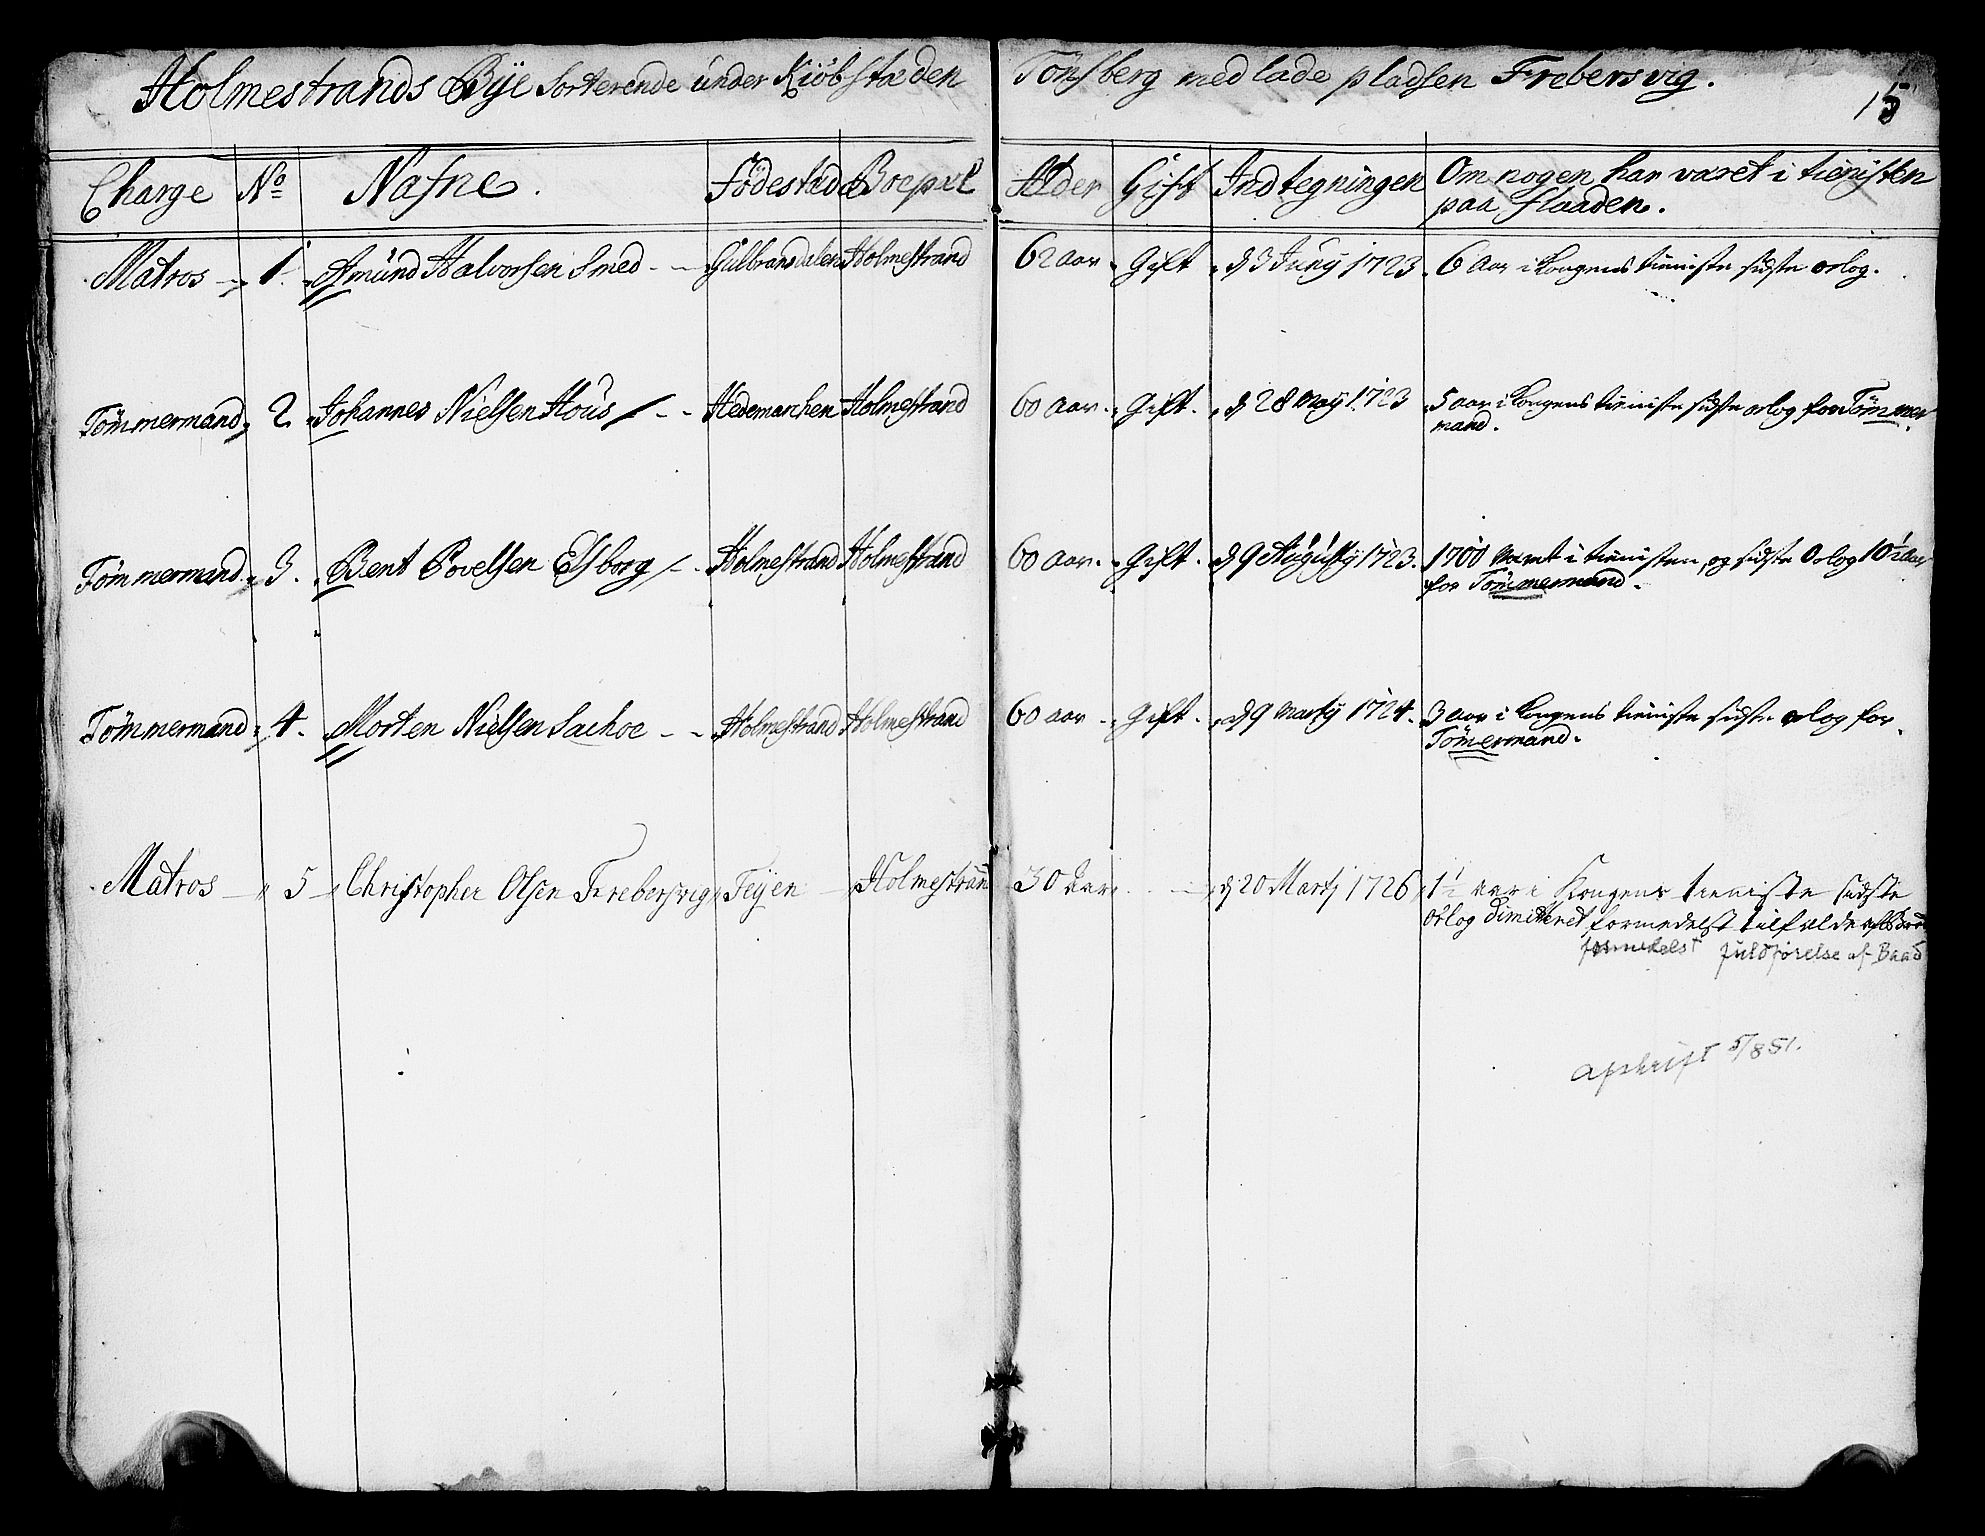 Holmestrands Bÿe Sorterende under Kiöbstæden Tönsberg med lade pladsen Frebersvig.
15
Charge No Nafne. Födestæd Boepæl Alder Gift Indtegningen Om nogen har været i tienisten
paa flaaden.
Matros 1. Amund Halvorsen Smed - Gulbransdalen Holmestrand 62 aar. Gift d 3 Juny 1723. 6 Aar i kongens tieniste sidste orlog.
Tömmermand 2. Johannes Nielsen Hous - Hedemarchen Holmestrand 60 aar. Gift. d 28 May 1723 5 aar i kongens tieniste sidste orlog for Tömmer
mand.
Tömmermand 3. Bent Povelsen Elsborg - Holmestrand Holmestrand 60 aar. Gift. d 9 Augusty 1723. 1700 været i tienisten, og sidste Orlog 10 aar
for Tömmermand.
Tömmermand 4. Morten Nielsen Sachoe - Holmestrand Holmestrand 60 aar. Gift. d 9 Marty 1724. 3 aar i kongens tieniste sidste orlog for
Tömermand.
Matros 5 Christopher Olsen Frebersvig Teÿen Holmestran 30 aar d 20 Martj 1726 1½ aar i Kongens tieniste sidste
orlog Dimitteret formedelst tilfælde af
formedelst fuldførelse af Baad
afskrift 5/8 51.